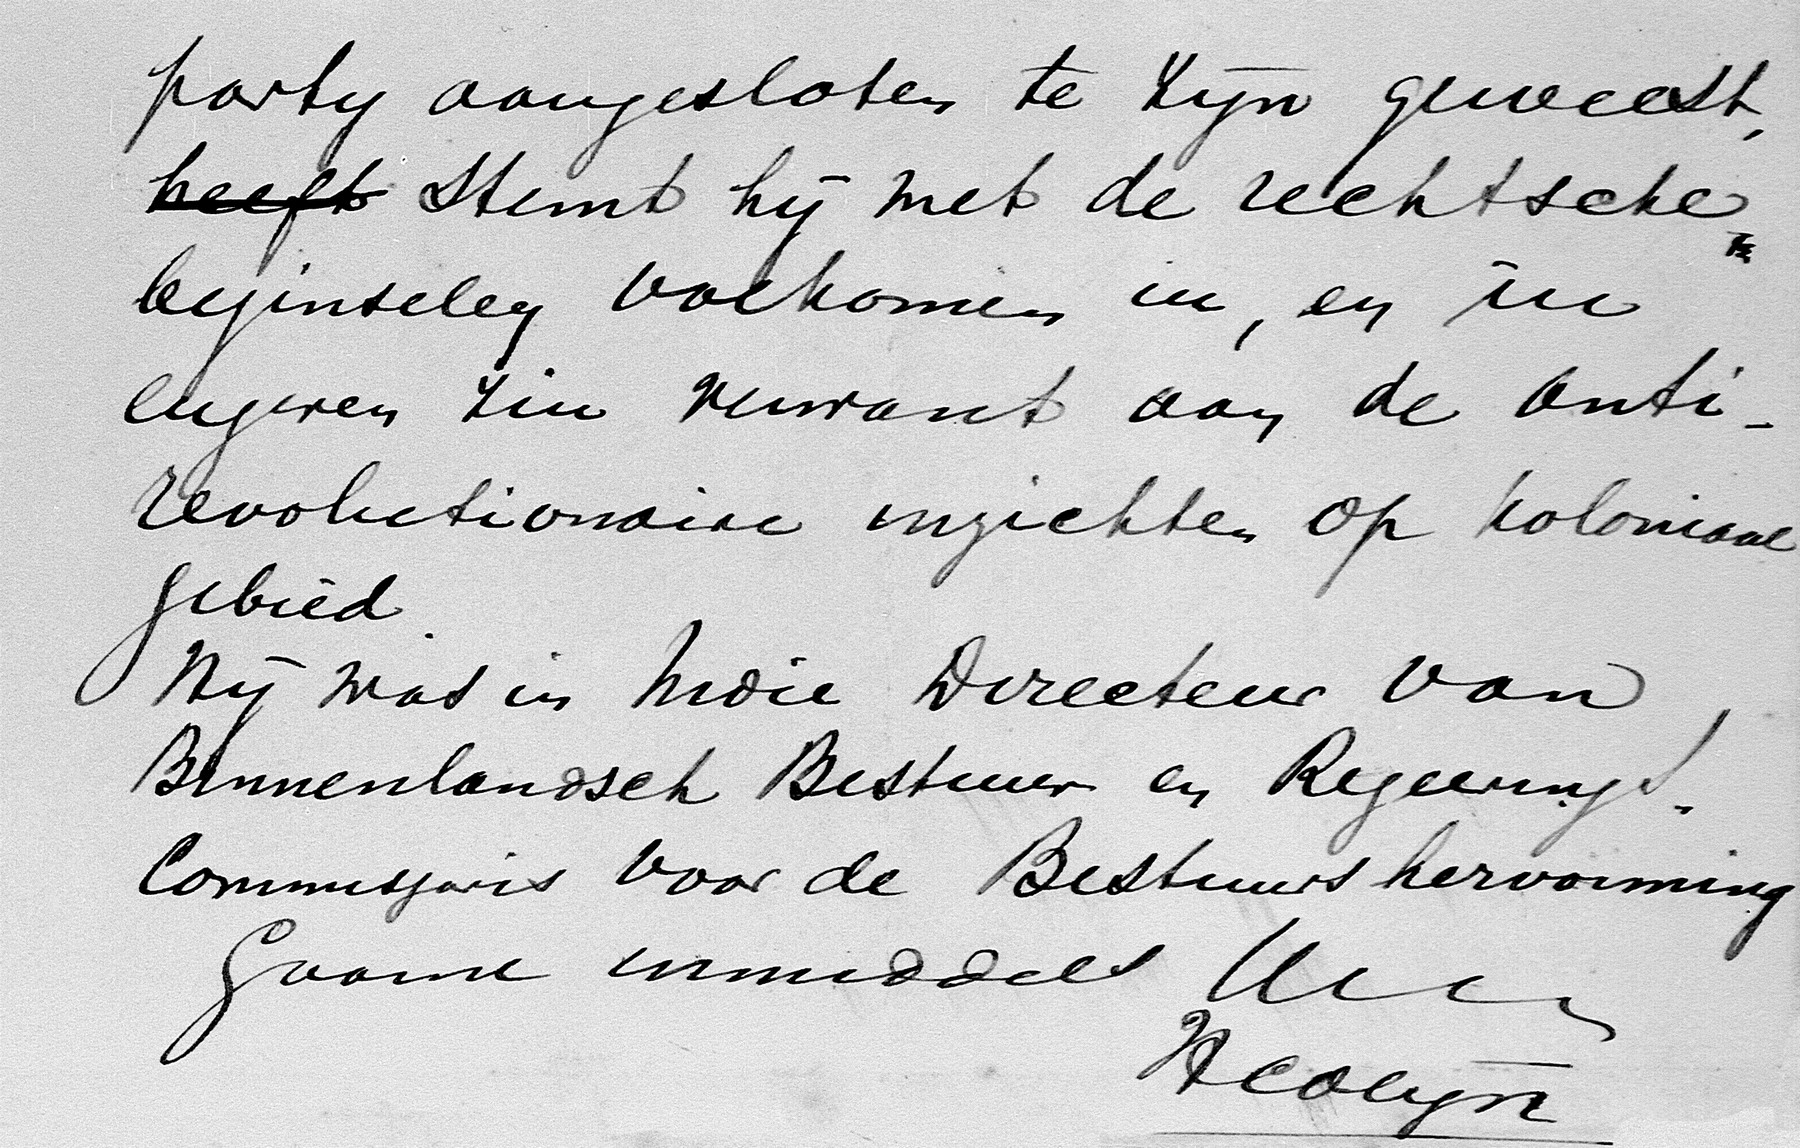 party aangesloten te zijn geweest,
heeft stemt hij met de rechtsche
beginselen volkomen in, en in
engeren zin verwant aan de anti-
revolutionaire inzichten op koloniaal
gebied.
Hij was in Indie Directeur van
Binnenlandsch Bestuur en Regeerings-
Commissaris voor de Bestuurshervorming
Gaarne inmiddels
HColijn